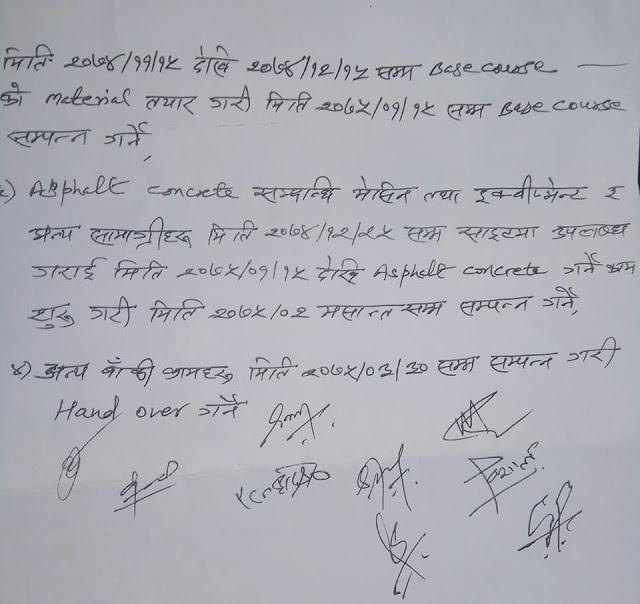 मिति २०७४/११/१५ देखि २०७४/१२/१५ सम्म Base course
को material तयार गरी मिति २०७५/०१/१५ सम्म Base course
सम्पन्न गर्ने,
Asphalt concrete सम्वन्धि मेसिन तथा इक्वीपमेन्ट र
अन्य सामाग्रीहरु मिति २०७४/१२/२५ सम्म साइटमा उपलब्ध
गराई मिति २०७५/०१/१५ देखि Asphalt concrete गर्ने काम
शुरु गरी मिति २०७५/०२ मसान्त सम्म सम्पन्न गर्ने,
४) अन्य बाँकी कामहरु मिति २०७५/०३/३० सम्म सम्पन्न गरी
Hand over गर्ने